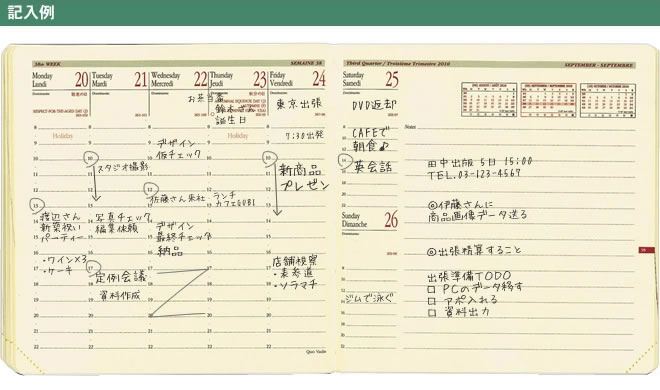 記入例
38th WEEK
SEMAINE 38
Monday
Lundi
20
Tuesday
Mardi
21
Wednesday
Mercredi
22
Thursday
Jeudi
23
Friday
Vendredi
24
RESPECT FOR THE AGED DAY
Holiday
渡辺さん
新築祝い
パーティー
・ワイン×3
・ケーキ
スタジオ撮影
写真チェック
編集依頼
定例会議
資料作成
お茶当番
デザイン
仮チェック
佐藤さん来社
デザイン
最終チェック
納品
誕生日
Holiday
ランチ
東京出張
7:30出発
新商品
プレゼン
店舗視察
・表参道
・ソラマチ
Quo Vadis
Third Quarter / Troisième Trimestre 2010
SEPTEMBER - SEPTEMBRE
Saturday
Samedi
25
DVD返却
CAFEで
朝食♪
英会話
Sunday
Dimanche
26
ジムで泳ぐ
Notes
田中出版 5日 15:00
TEL.03-123-4567
◎伊藤さんに
商品画像データ送る
◎出張精算すること
出張準備TODO
□ PCのデータ移す
□ アポ入れる
□ 資料出力